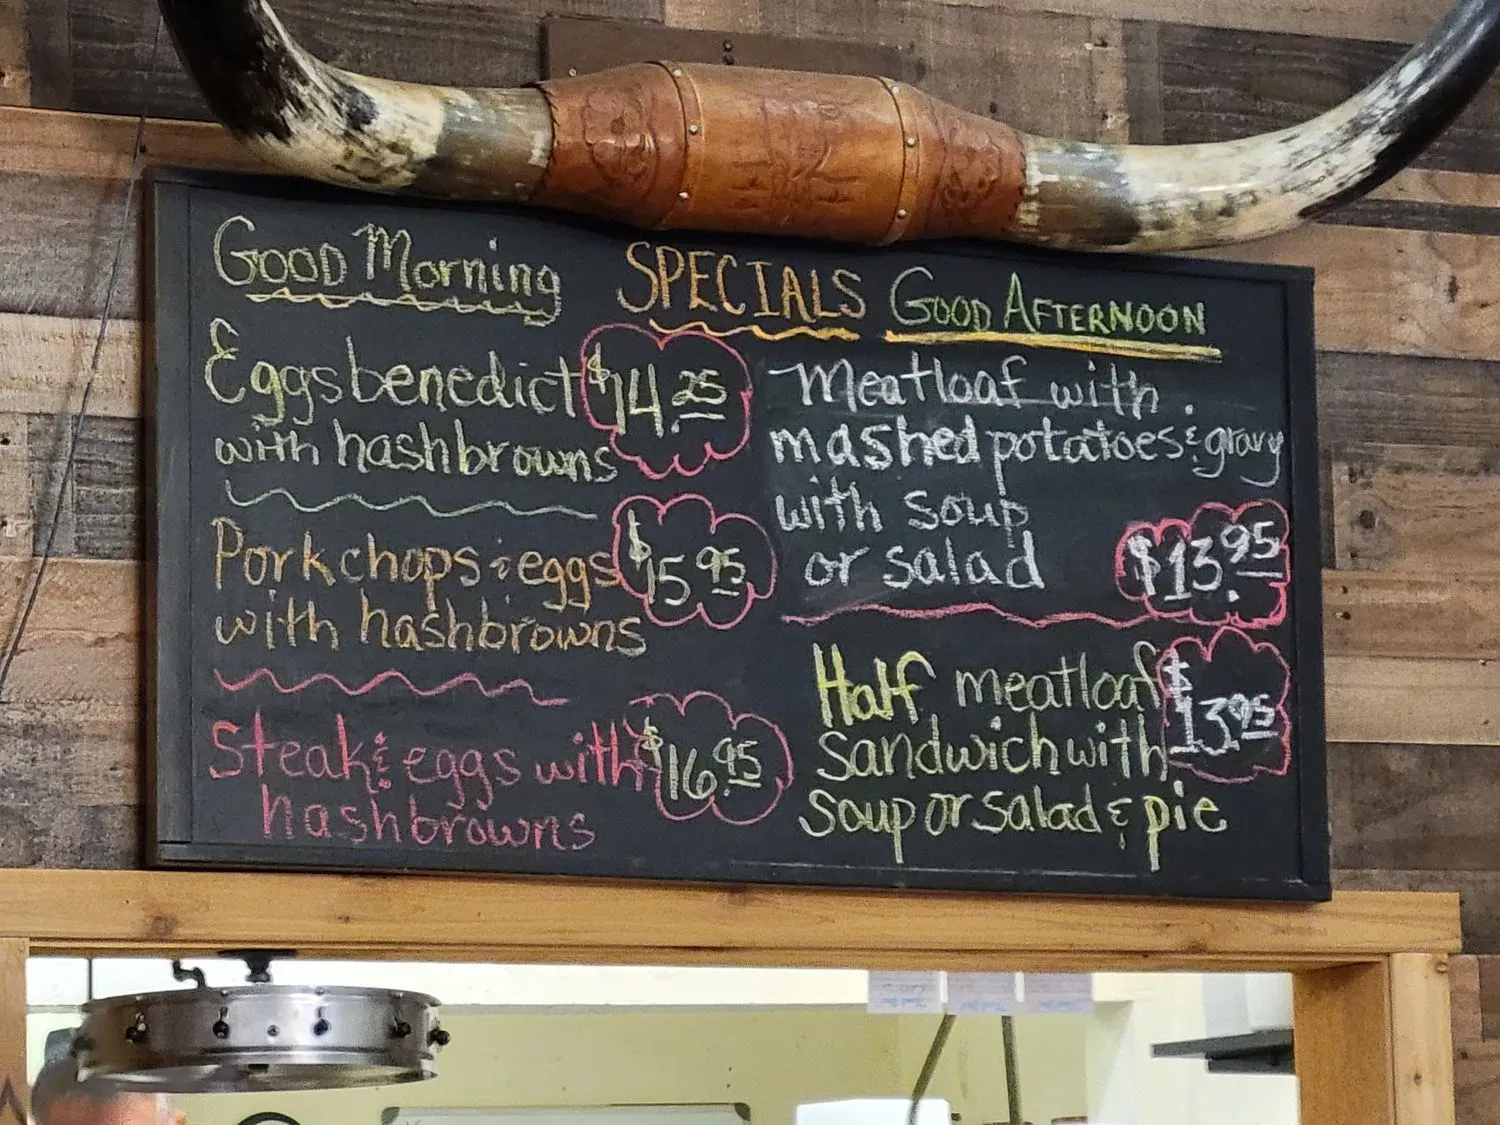 Good Morning
SPECIALS
Good Afternoon
Eggs benedict $14.25
with hashbrowns
Pork chops & eggs $15.95
with hashbrowns
Steak & eggs with $16.95
hashbrowns
Meatloaf with
mashed potatoes & gravy
with soup
or salad $13.95
Half meatloaf $13.95
sandwich with
soup or salad & pie